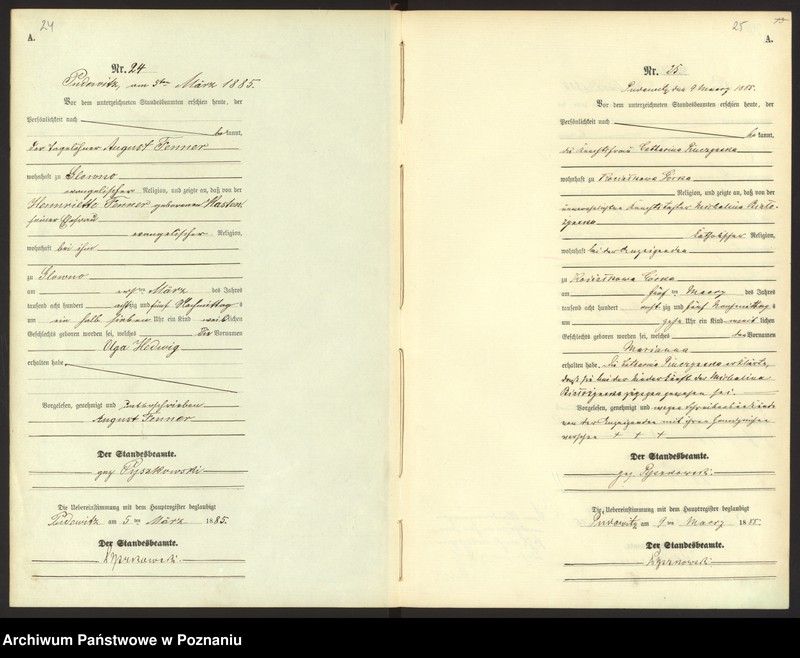 24
A.
Nr. 24
Pudewitz, am 5ten März 1885.
Vor dem unterzeichneten Standesbeamten erschien heute, der
Persönlichkeit nach
be kannt,
der Tagelöhner August Fenner
wohnhaft zu Glowno
evangelischer Religion, und zeigte an, daß von der
Henriette Fenner geborenen
seiner Ehefrau
evangelischer Religion,
wohnhaft bei ihm
zu Glowno
am März des Jahres
tausend acht hundert achtzig und fünf Nachmittag s
um ein halb sieben Uhr ein Kind weiblichen
Geschlechts geboren worden sei, welches die Vornamen
Olga Hedwig
erhalten habe
Vorgelesen, genehmigt und unterschrieben
August Fenner
Der Standesbeamte.
gez
Die Uebereinstimmung mit dem Hauptregister beglaubigt
Pudewitz am 5 ten März 1885.
Der Standesbeamte.
25
A.
Nr. 25.
Pudewitz den 9 Maerz 1885.
Vor dem unterzeichneten Standesbeamten erschien heute, der
Persönlichkeit nach
be kannt,
die Catharina
wohnhaft zu Gorka
Religion, und zeigte an, daß von der
unverehelichten Michalina
katholischer Religion,
wohnhaft bei der Anzeigenden
zu Gorka
am fünf ten Maerz des Jahres
tausend acht hundert acht zig und fünf Nachmittag s
um zehn Uhr ein Kind weib lichen
Geschlechts geboren worden sei, welches den Vornamen
Marianna
erhalten habe. Die Catharina erklärte,
daß sie bei der Niederkunft der Michalina
zugegen gewesen sei.
Vorgelesen, genehmigt und wegen Schreibensunkunde
von der Anzeigenden mit ihrem Handzeichen
versehen + + +
Der Standesbeamte.
gez
Die Uebereinstimmung mit dem Hauptregister beglaubigt
Pudewitz am 9 ten Maerz 1885.
Der Standesbeamte.
Archiwum Państwowe w Poznaniu